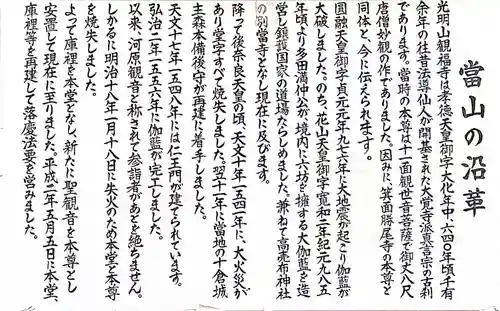 當山の沿革
光明山観福寺は孝徳天皇御宇大化年中、六四〇年頃千有
余年の往昔法導仙人が開基された大覚寺派真言宗の古刹
であります。當時の本尊は十一面観世音菩薩で御丈八尺
唐僧妙観の作でありました。因みに、箕面勝尾寺の本尊と
同体と、今に伝えられます。
圓融天皇御宇貞元元年九七六年に大地震が起こり伽藍が
大破しました。のち、花山天皇御宇寛和二年紀元九八五
年頃より多田満仲公が、境内に六坊を擁する大伽藍を造
営し鎮護国家の道場たらしめました。兼ねて高売布神社
の別當寺となし現在に及びます。
降って後奈良天皇の頃、天文十年一五四一年に、大火災が
あり堂字すべて焼失しました。翌十一年に當地の十倉城
主森本備後守が再建に着手しました。
天文十七年一五四八年には仁王門が建てられています。
弘治二年一五五六年に伽藍が完工しました。
以来、河原観音と称されて参詣者があとを絶ちません。
しかるに明治十八年一月十八日に失火のため本堂と本尊
を焼失しました。
よって庫裡を本堂となし、新たに聖観音を本尊とし
安置して現在に至りました。平成二年五月五日に本堂、
庫裡等を再建して落慶法要を営みました。